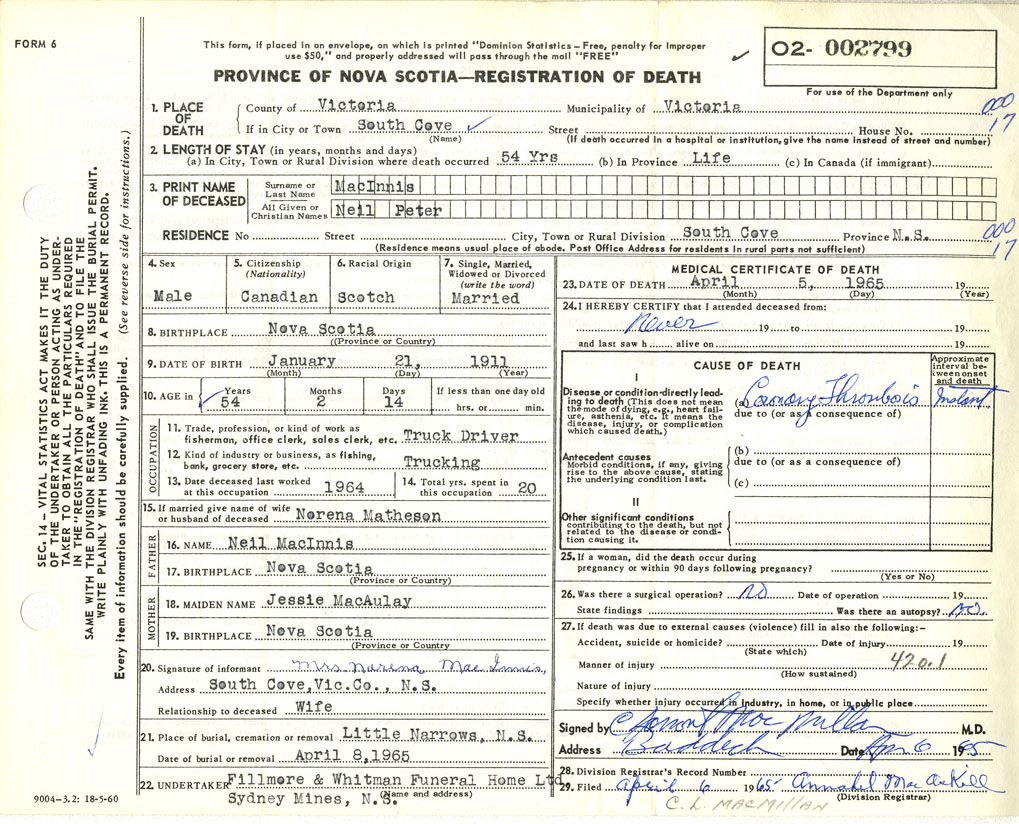 FORM 6
This form, if placed in an envelope, on which is printed "Dominion Statistics – Free, penalty for Improper
use $50," and properly addressed will pass through the mail "FREE"
PROVINCE OF NOVA SCOTIA—REGISTRATION OF DEATH
O2- 002799
For use of the Department only
1. PLACE OF DEATH
County of Victoria Municipality of Victoria
000
17
If in City or Town South Cove ✓ Street House No.
(Name) (If death occurred in a hospital or institution, give the name instead of street and number)
2. LENGTH OF STAY (in years, months and days)
(a) In City, Town or Rural Division where death occurred 54 Yrs (b) In Province Life (c) In Canada (if immigrant)
3. PRINT NAME OF DECEASED
Surname or Last Name MacInnis
All Given or Christian Names Neil Peter
RESIDENCE No Street City, Town or Rural Division South Cove Province N.S.
000
17
(Residence means usual place of abode. Post Office Address for residents in rural parts not sufficient)
4. Sex
Male
5. Citizenship
(Nationality)
Canadian
6. Racial Origin
Scotch
7. Single, Married,
Widowed or Divorced
(write the word)
Married
8. BIRTHPLACE Nova Scotia
((Province or Country)
9. DATE OF BIRTH January 21, 1911
(Month) (Day) (Year)
10. AGE in Years Months Days If less than one day old
✓ 54 2 14 hrs. or min.
OCCUPATION
11. Trade, profession, or kind of work as
fisherman, office clerk, sales clerk, etc. Truck Driver
12. Kind of industry or business, as fishing,
bank, grocery store, etc. Trucking
13. Date deceased last worked
at this occupation 1964
14. Total yrs. spent in
this occupation 20
15. If married give name of wife
or husband of deceased Norena Matheson
FATHER
16. NAME Neil MacInnis
17. BIRTHPLACE Nova Scotia
(Province or Country)
MOTHER
18. MAIDEN NAME Jessie MacAulay
19. BIRTHPLACE Nova Scotia
(Province or Country
20. Signature of informant Mrs Norena MacInnis,
Address South Cove,Vic.Co., N.S.
Relationship to deceased Wife
21. Place of burial, cremation or removal Little Narrows, N.S.
Date of burial or removal April 8,1965
22. UNDERTAKER Fillmore & Whitman Funeral Home Ltd.
Sydney Mines, N.S.
(Name and address)
MEDICAL CERTIFICATE OF DEATH
23. DATE OF DEATH April 5, 1965
(Month) (Day) (Year)
24. I HEREBY CERTIFY that I attended deceased from:
Never 19 to 19
and last saw h alive on 19
CAUSE OF DEATH
Approximate interval between onset and death
I
Disease or condition directly leading to death (This does not mean the mode of dying, e.g., heart failure, asthenia, etc. It means the disease, injury, or complication which caused death.)
(a) Coronary Thrombosis Instant
due to (or as a consequence of)
Antecedent causes
Morbid conditions, if any, giving
rise to the above cause, stating
the underlying condition last.
(b)
due to (or as a consequence of)
(c)
II
Other significant conditions
contributing to the death, but not
related to the disease or condition causing it.
25. If a woman, did the death occur during
pregnancy or within 90 days following pregnancy?
(Yes or No)
26. Was there a surgical operation? No Date of operation 19
State findings Was there an autopsy? No.
27. If death was due to external causes (violence) fill in also the following:–
Accident, suicide or homicide? Date of injury 19
(State which)
420.1
Manner of injury
(How sustained)
Nature of injury
Specify whether injury occurred in Industry, in home, or in public place
Signed by C. Lamont MacMillan M.D.
Address Baddeck Date Apr 6 1965
28. Division Registrar's Record Number
29. Filed April 6 1965 Annabel MacAskill
(Division Registrar)
C. L. MACMILLAN
SEC. 14 – VITAL STATISTICS ACT MAKES IT THE DUTY
OF THE UNDERTAKER OR PERSON ACTING AS UNDER-
TAKER TO OBTAIN ALL THE PARTICULARS REQUIRED
IN THE "REGISTRATION OF DEATH" AND TO FILE THE
SAME WITH THE DIVISION REGISTRAR WHO SHALL ISSUE THE BURIAL PERMIT.
WRITE PLAINLY WITH UNFADING INK. THIS IS A PERMANENT RECORD.
Every item of information should be carefully supplied. (See reverse side for instructions.)
9004–3.2: 18-5-60